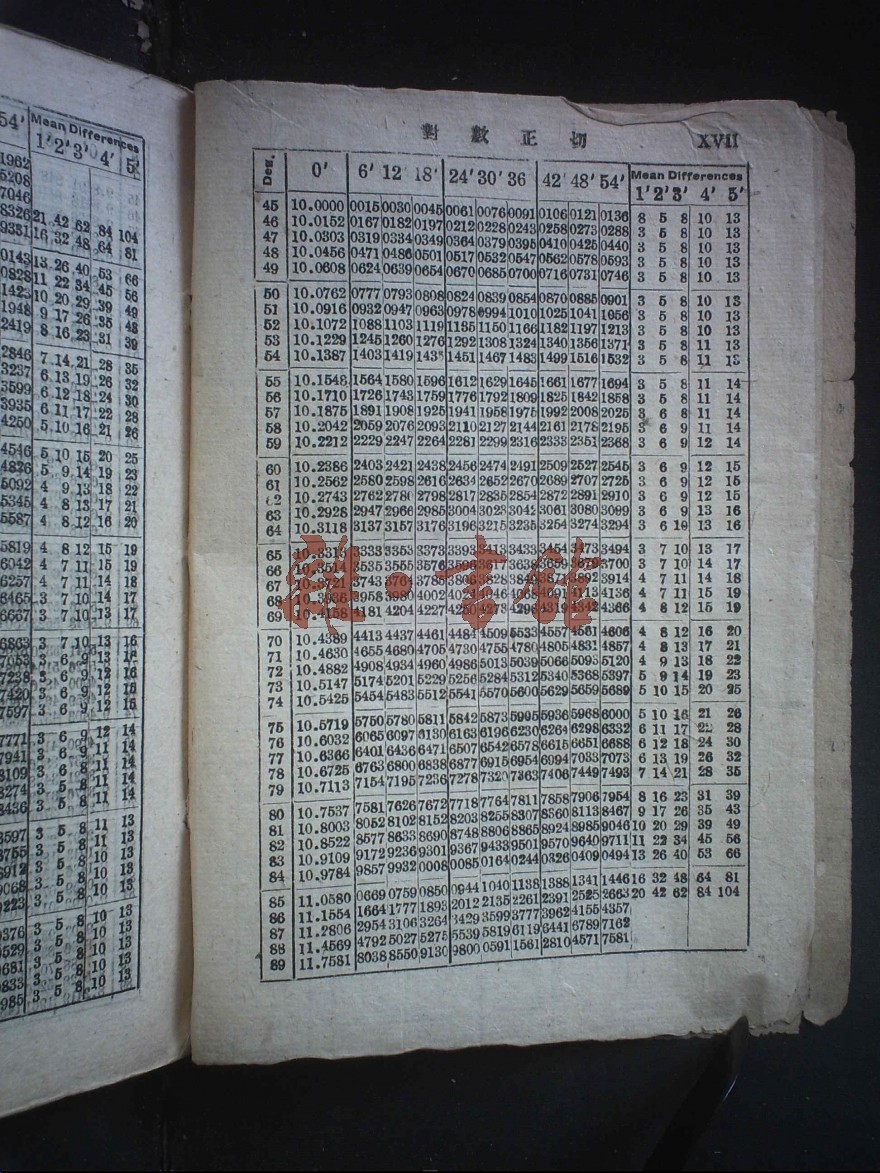 54' Mean Differences
1' 2' 3' 4' 5'
1962
5208
7046
8326 21 42 62 84 104
9331 16 32 48 64 81
0143 13 26 40 53 66
0828 11 22 34 45 56
1423 10 20 29 39 49
1948 9 17 26 35 43
2419 8 16 23 31 39
2846 7 14 21 28 35
3237 6 13 19 26 32
3599 6 12 18 24 30
3935 6 11 17 22 28
4250 5 10 16 21 26
4546 5 10 15 20 25
4836 5 9 14 19 23
5092 4 9 13 18 22
5345 4 8 13 17 21
5587 4 8 12 16 20
5819 4 8 12 15 19
6042 4 7 11 15 19
6257 4 7 11 14 18
6465 3 7 10 14 17
6667 3 7 10 13 17
對數正切 XVII
Deg. 0' 6' 12' 18' 24' 30' 36 42' 48' 54' Mean Differences
1' 2' 3' 4' 5'
45 10.0000 0015 0030 0045 0061 0076 0091 0106 0121 0136 8 5 8 10 13
46 10.0152 0167 0182 0197 0212 0228 0243 0258 0273 0288 3 5 8 10 13
47 10.0303 0319 0334 0349 0364 0379 0395 0410 0425 0440 3 5 8 10 13
48 10.0456 0471 0486 0501 0517 0532 0547 0562 0578 0593 3 5 8 10 13
49 10.0608 0624 0639 0654 0670 0685 0700 0716 0731 0746 3 5 8 10 13
50 10.0762 0777 0793 0808 0824 0839 0854 0870 0885 0901 3 5 8 10 13
51 10.0916 0932 0947 0963 0978 0994 1010 1025 1041 1056 3 5 8 10 13
52 10.1072 1088 1103 1119 1135 1150 1166 1182 1197 1213 3 5 8 10 13
53 10.1229 1245 1260 1276 1292 1308 1324 1340 1356 1371 3 5 8 11 13
54 10.1387 1403 1419 1435 1451 1467 1483 1499 1516 1532 3 5 8 11 13
55 10.1548 1564 1580 1596 1612 1629 1645 1661 1677 1694 3 5 8 11 14
56 10.1710 1726 1743 1759 1776 1792 1809 1825 1842 1858 3 5 8 11 14
57 10.1875 1891 1908 1925 1941 1958 1975 1992 2008 2025 3 6 8 11 14
58 10.2042 2059 2076 2093 2110 2127 2144 2161 2178 2195 3 6 9 11 14
59 10.2212 2229 2247 2264 2281 2299 2316 2333 2351 2368 3 6 9 12 14
60 10.2386 2403 2421 2438 2456 2474 2491 2509 2527 2545 3 6 9 12 15
61 10.2562 2580 2598 2616 2634 2652 2670 2689 2707 2725 3 6 9 12 15
62 10.2743 2762 2780 2798 2817 2835 2854 2872 2891 2910 3 6 9 12 15
63 10.2928 2947 2966 2985 3004 3023 3042 3061 3080 3099 3 6 9 13 16
64 10.3118 3137 3157 3176 3196 3215 3235 3254 3274 3294 3 6 10 13 16
65 10.3313 3333 3353 3373 3393 3413 3433 3454 3473 3494 3 7 10 13 17
66 10.3514 3535 3555 3576 3596 3617 3638 3659 3679 3700 3 7 10 14 17
67 10.3721 3743 3764 3785 3806 3828 3849 3871 3892 3914 4 7 11 14 18
68 10.3936 3958 3980 4002 4024 4046 4068 4091 4113 4136 4 7 11 15 19
69 10.4158 4181 4204 4227 4250 4273 4296 4319 4342 4366 4 8 12 15 19
70 10.4389 4413 4437 4461 4484 4509 5533 4557 4561 4606 4 8 12 16 20
71 10.4630 4655 4680 4705 4730 4755 4780 4805 4831 4857 4 8 13 17 21
72 10.4882 4908 4934 4960 4986 5013 5039 5066 5093 5120 4 9 13 18 22
73 10.5147 5174 5201 5229 5256 5284 5312 5340 5368 5397 5 9 14 19 23
74 10.5425 5454 5483 5512 5541 5570 5600 5629 5659 5689 5 10 15 20 25
75 10.5719 5750 5780 5811 5842 5873 5995 5936 5968 6000 5 10 16 21 26
76 10.6032 6065 6097 6130 6163 6196 6230 6264 6298 6332 6 11 17 22 28
77 10.6366 6401 6436 6471 6507 6542 6578 6615 6651 6688 6 12 18 24 30
78 10.6725 6763 6800 6838 6877 6915 6954 6994 7033 7073 6 13 19 26 32
79 10.7113 7154 7195 7236 7278 7320 7363 7406 7449 7493 7 14 21 28 35
80 10.7537 7581 7626 7672 7718 7764 7811 7858 7906 7954 8 16 23 31 39
81 10.8003 8052 8102 8152 8203 8255 8307 8360 8113 8467 9 17 26 35 43
82 10.8522 8577 8633 8690 8748 8806 8865 8924 8985 9046 10 20 29 39 49
83 10.9109 9172 9236 9301 9367 9433 9501 9570 9640 9711 11 22 34 45 56
84 10.9784 9857 9932 0008 0085 0164 0244 0326 0409 0494 13 26 40 53 66
85 11.0580 0669 0759 0850 0944 1040 1138 1388 1341 1446 16 32 48 64 81
86 11.1554 1664 1777 1893 2012 2135 2261 2391 2525 2663 20 42 62 84 104
87 11.2806 2954 3106 3264 3429 3599 3777 3962 4155 4357
88 11.4569 4792 5027 5275 5539 5819 6119 6441 6789 7162
89 11.7581 8038 8550 9130 9800 0591 1561 2810 4571 7581